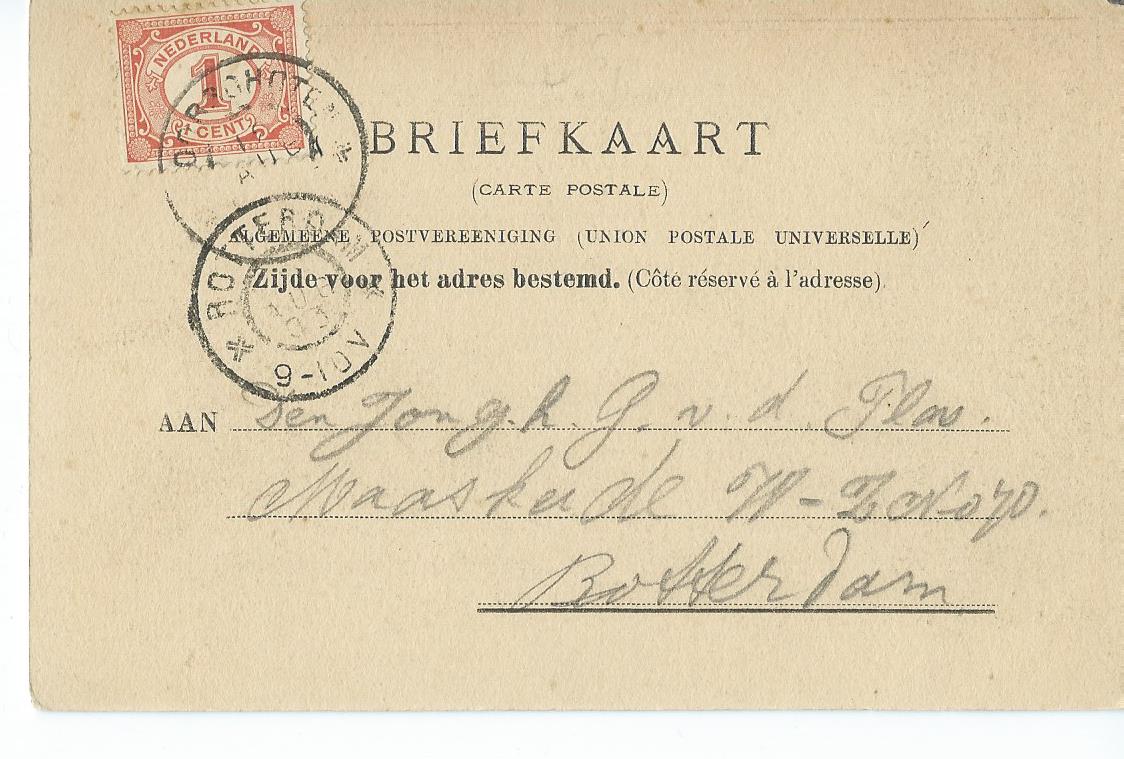 NEDERLAND
1
CENT
BRIEFKAART
(CARTE POSTALE)
ALGEMEENE POSTVEREENIGING (UNION POSTALE UNIVERSELLE)
Zijde voor het adres bestemd. (Côté réservé à l'adresse)
ROTTERDAM
AUG
03
9-10V
AAN Den Jong.h. G. v. d.
Maaskade W-Z No 70.
Rotterdam